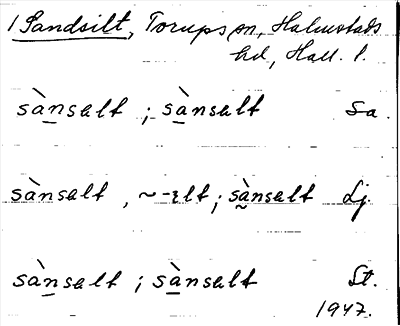 1 Sandsilt, Torups sn, Halmstads
hd, Hall. l.
sànsalt ; sànsalt Sa.
sànsalt , ~-ılt ; sànsalt Lj.
sànsalt ; sànsalt St.
1947.